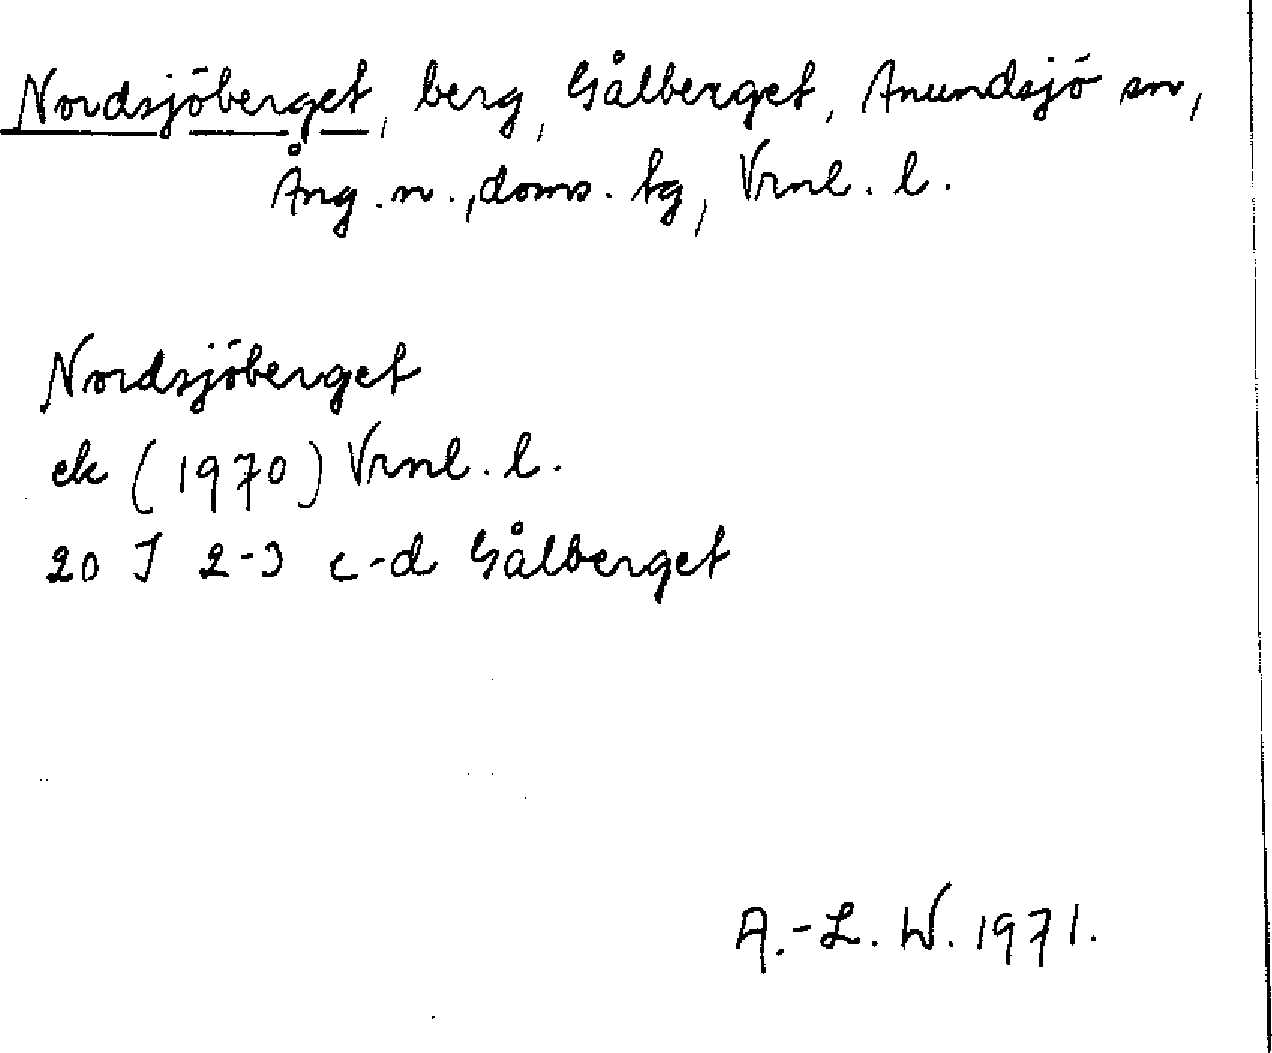 Nordsjöberget, berg, Gålberget, Anundsjö sn,
Ång. n., doms. tg, Vrnl. l.
Nordsjöberget
ek (1970) Vrnl. l.
20 J 2-3 c-d Gålberget
A.-L. W. 1971.